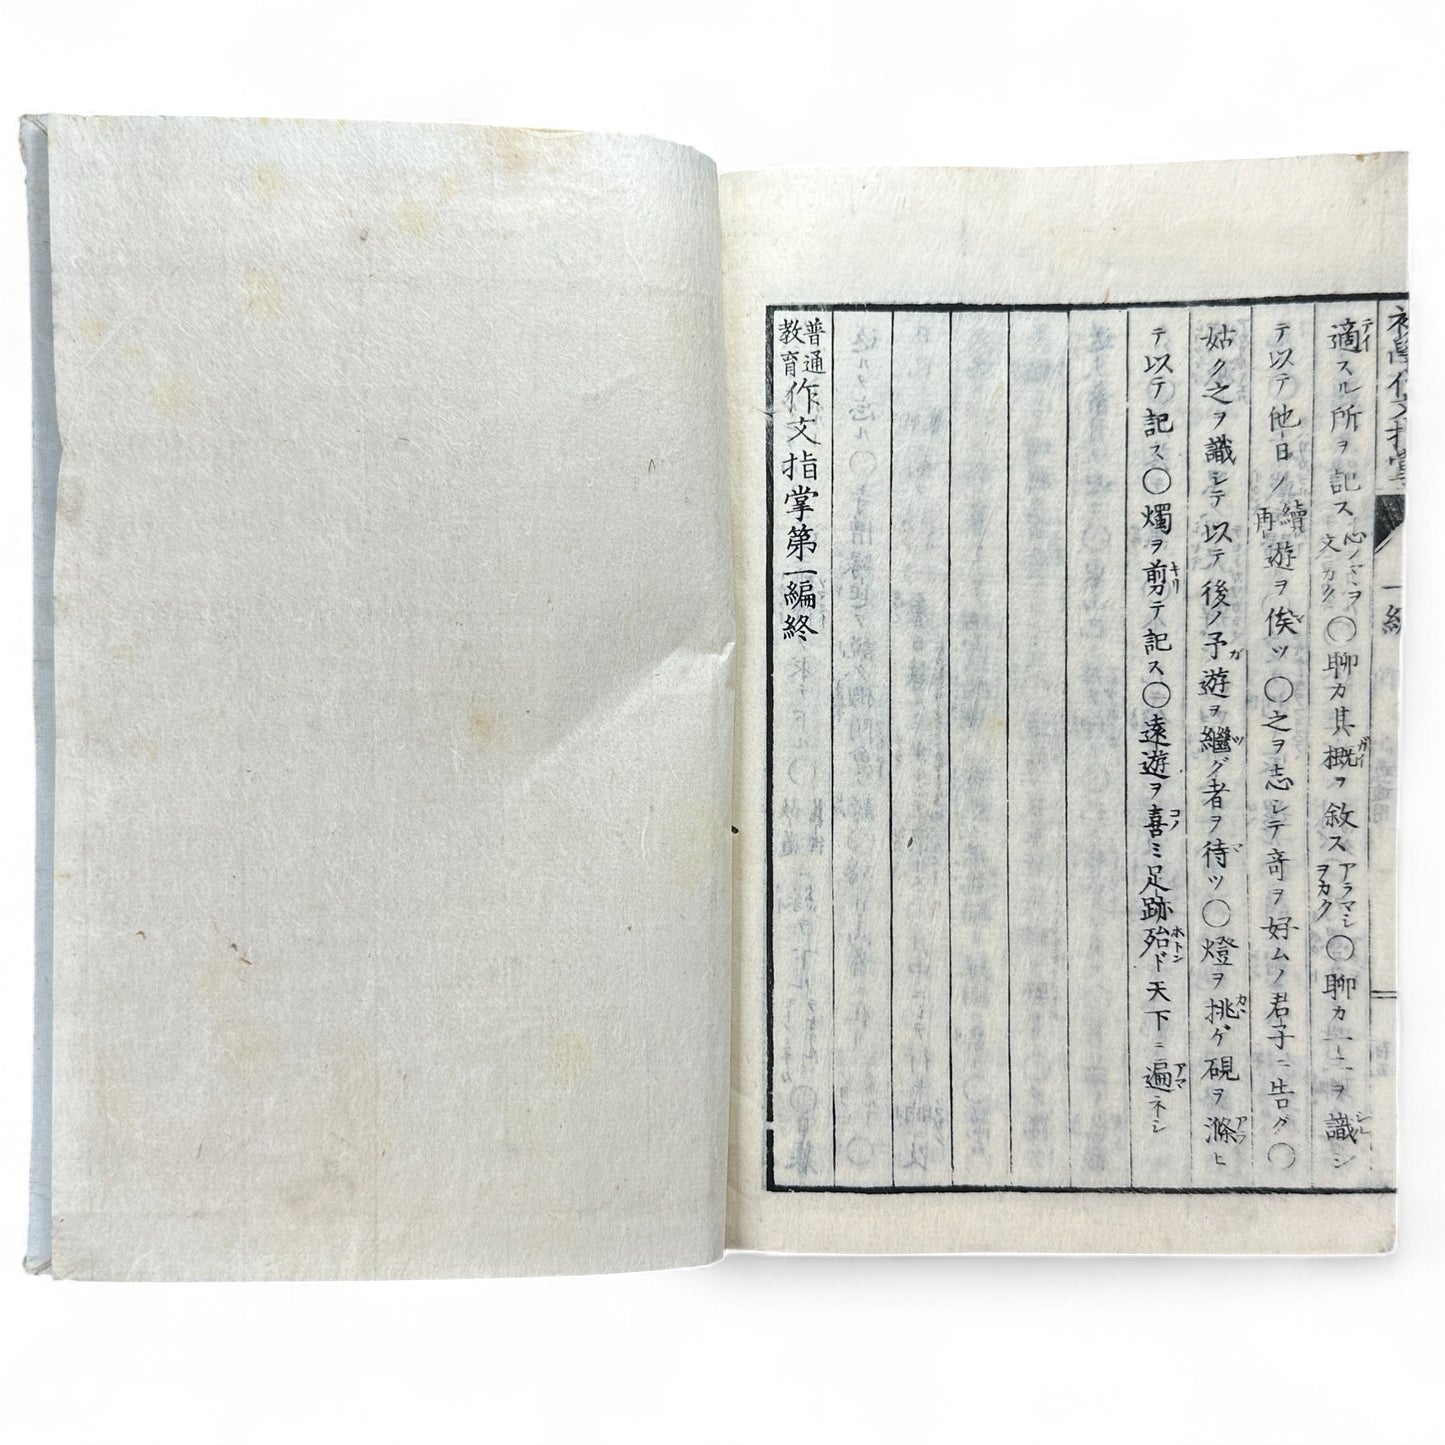 初學作文指掌 一編
適スル所ヲ記ス 心ノマヽヲ文ニカク ◯聊カ其概ヲ敘ス アラマシヲカク ◯聊カ一二ヲ識シ
テ以テ他日ノ 續再 遊ヲ俟ツ◯之ヲ志シテ奇ヲ好ムノ君子ニ告グ◯
姑ク之ヲ識シテ以テ後ノ予ガ遊ヲ繼グ者ヲ待ツ◯燈ヲ挑ゲ硯ヲ滌ヒ
テ以テ記ス◯燭ヲ剪テ記ス◯遠遊ヲ喜ミ足跡殆ド天下ニ遍ネシ
普通教育作文指掌第一編終